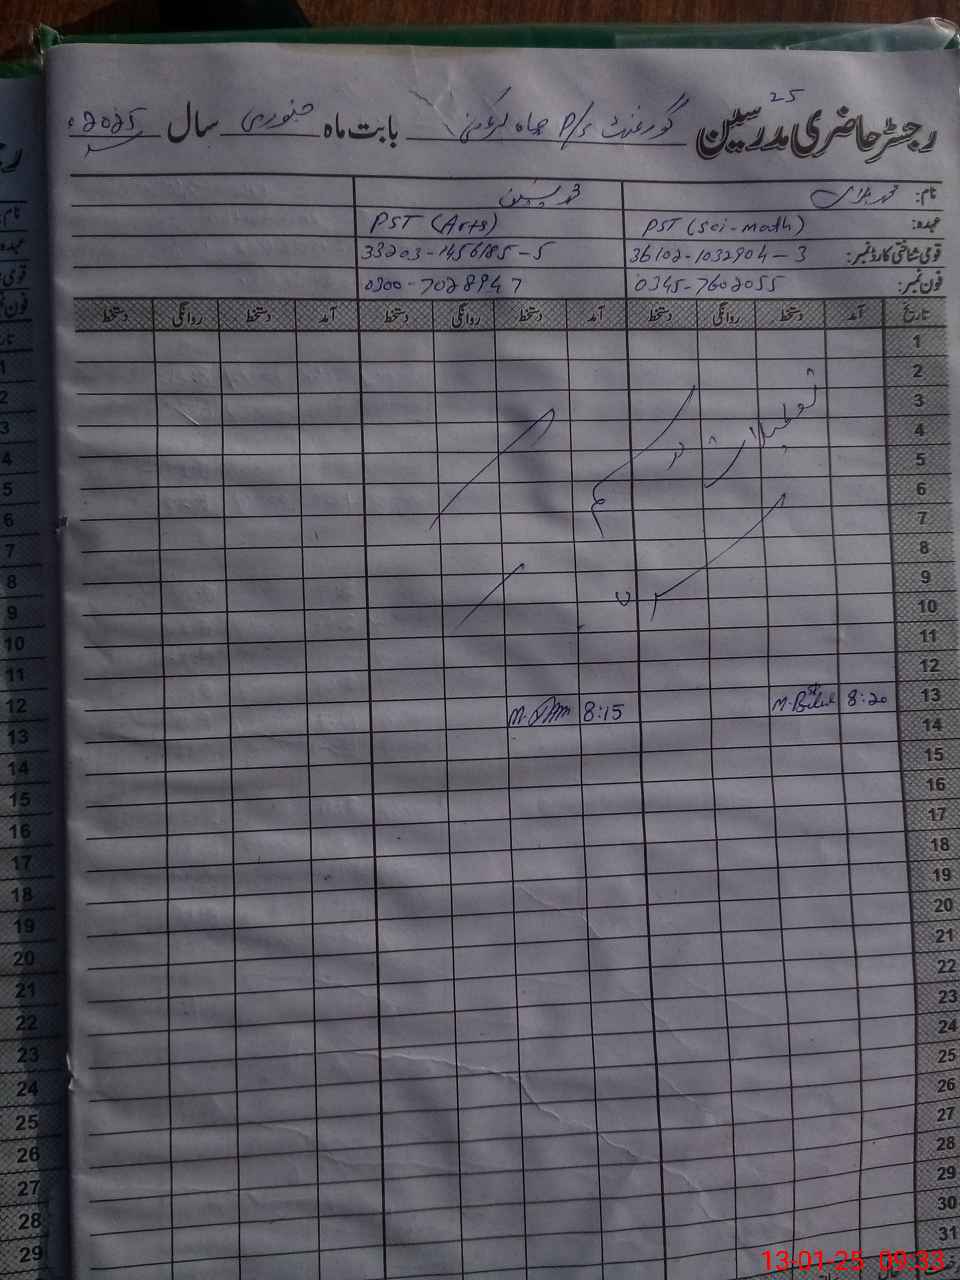 25
رجسٹر حاضری مدرسین گورنمنٹ P/S چاہ بابت ماہ جنوری سال 2025ء
نام: محمد بلال محمد یٰسین
عہدہ: PST (Sci-math) PST (Arts)
قومی شناختی کارڈ نمبر: 36102-1032904-3 33203-1456185-5
فون نمبر: 0345-7602055 0300-7028947
تاریخ آمد دستخط روانگی دستخط آمد دستخط روانگی دستخط آمد دستخط روانگی دستخط
1
2
3
4
5
6
7
8
9
10
11
12
13 8:20 M. Bilal 8:15
14
15
16
17
18
19
20
21
22
23
24
25
26
27
28
29
30
31
تعطیلات موسم سرما
13-01-25 09:33